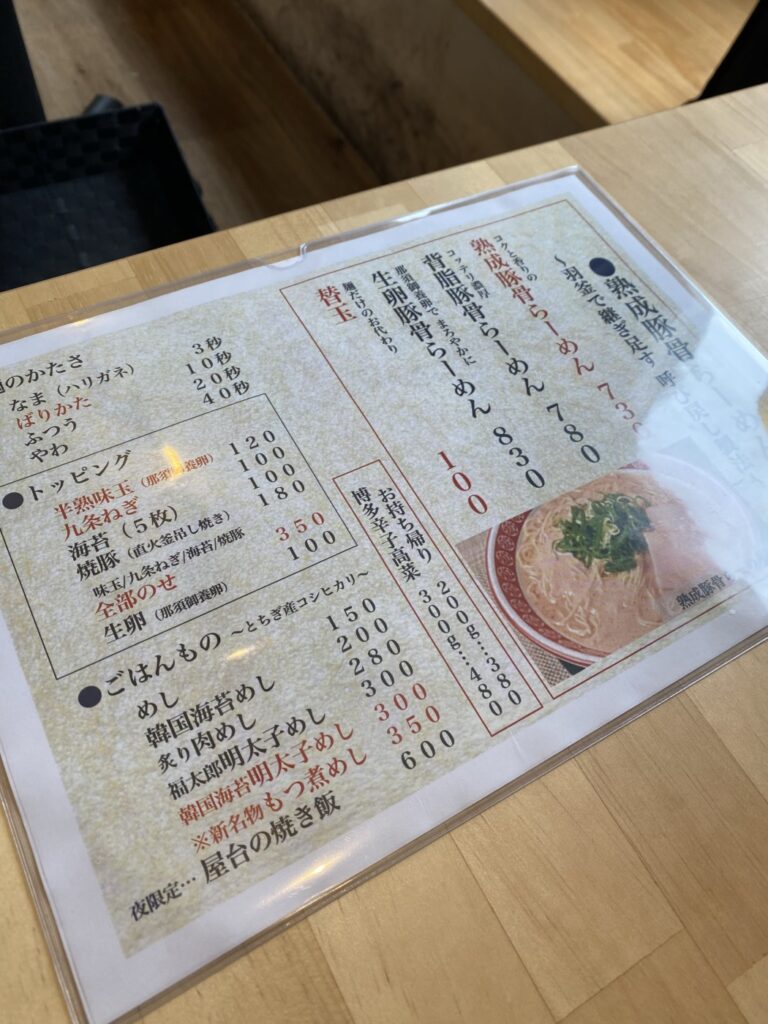 ●熟成豚骨
～羽釜で継ぎ足す 呼び戻し
コクと香りの
熟成豚骨らーめん 730
コッテリ濃厚
背脂豚骨らーめん 780
那須御養卵で まろやかに
生卵豚骨らーめん 830
麺だけのお代わり
替玉 100
お持ち帰り
博多辛子高菜
200g…380
300g…480
熟成豚骨
のかたさ
なま（ハリガネ） 3秒
ばりかた 10秒
ふつう 20秒
やわ 40秒
●トッピング
半熟味玉（那須御養卵） 120
九条ねぎ 100
海苔（5枚） 100
焼豚（直火釜吊し焼き） 180
味玉/九条ねぎ/海苔/焼豚
全部のせ 350
生卵（那須御養卵） 100
●ごはんもの ～とちぎ産コシヒカリ～
めし 150
韓国海苔めし 200
炙り肉めし 280
福太郎明太子めし 300
韓国海苔明太子めし 300
※新名物もつ煮めし 350
夜限定…屋台の焼き飯 600